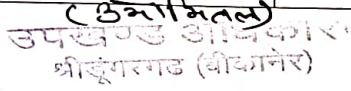 (उमा मित्तल)
उपखण्ड अधिकारी
श्रीडूंगरगढ (बीकानेर)